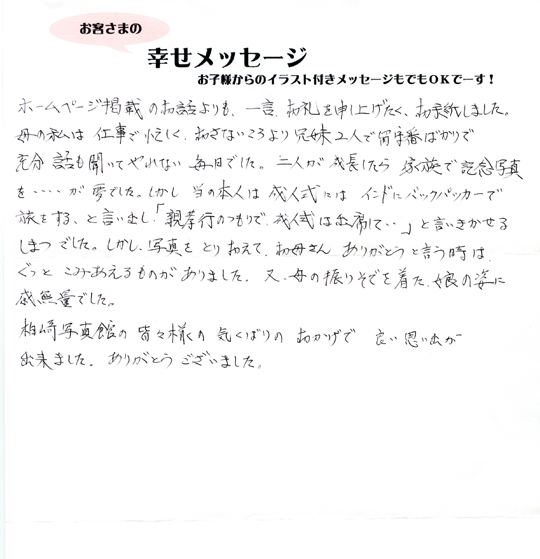 お客さまの
幸せメッセージ
お子様からのイラスト付きメッセージもでもOKでーす！
ホームページ掲載のお話よりも、一言、お礼を申し上げたく、お手紙しました。
母の私は仕事で忙しく、おさないころより兄妹2人で留守番ばかりで
充分話も聞いてやれない毎日でした。二人が成長したら家族で記念写真
を・・・・が夢でした。しかし当の本人は成人式にはインドにバックパッカーで
旅をする、と言い出し「親孝行のつもりで、成人式は出席して・・」と言いきかせる
しまつでした。しかし、写真をとりおえて、お母さんありがとうと言う時は、
ぐっとこみあえるものがありました。又、母の振りそでを着た娘の姿に
感無量でした。
柏崎写真館の皆々様の気くばりのおかげで良い思い出が
出来ました。ありがとうございました。